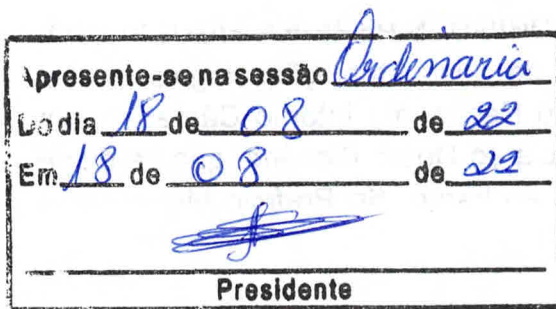 Apresente-se na sessão Ordinaria
Do dia 18 de 08 de 22
Em 18 de 08 de 22
Presidente